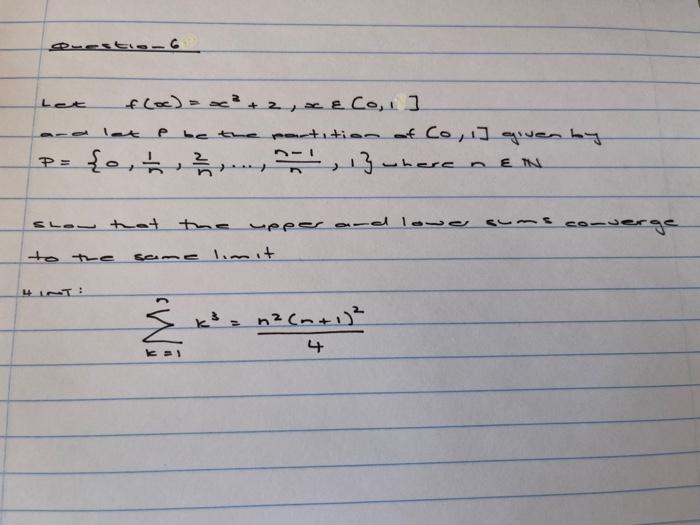 Question 6
Let f(x) = x³ + 2, x ε [0, 1]
and let P be the partition of [0, 1] given by
P = {0, 1/n, 2/n, ..., n-1/n, 1} where n ε ℕ
show that the upper and lower sums converge
to the same limit
HINT:
∑_{k=1}^{n} k³ = n²(n+1)²/4